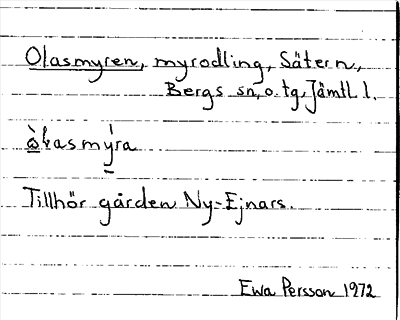 Olasmyren, myrodling, Sätern,
Bergs sn, o. tg, Jämtl. l.
Tillhör gården Ny-Ejnars.
Ewa Persson 1972